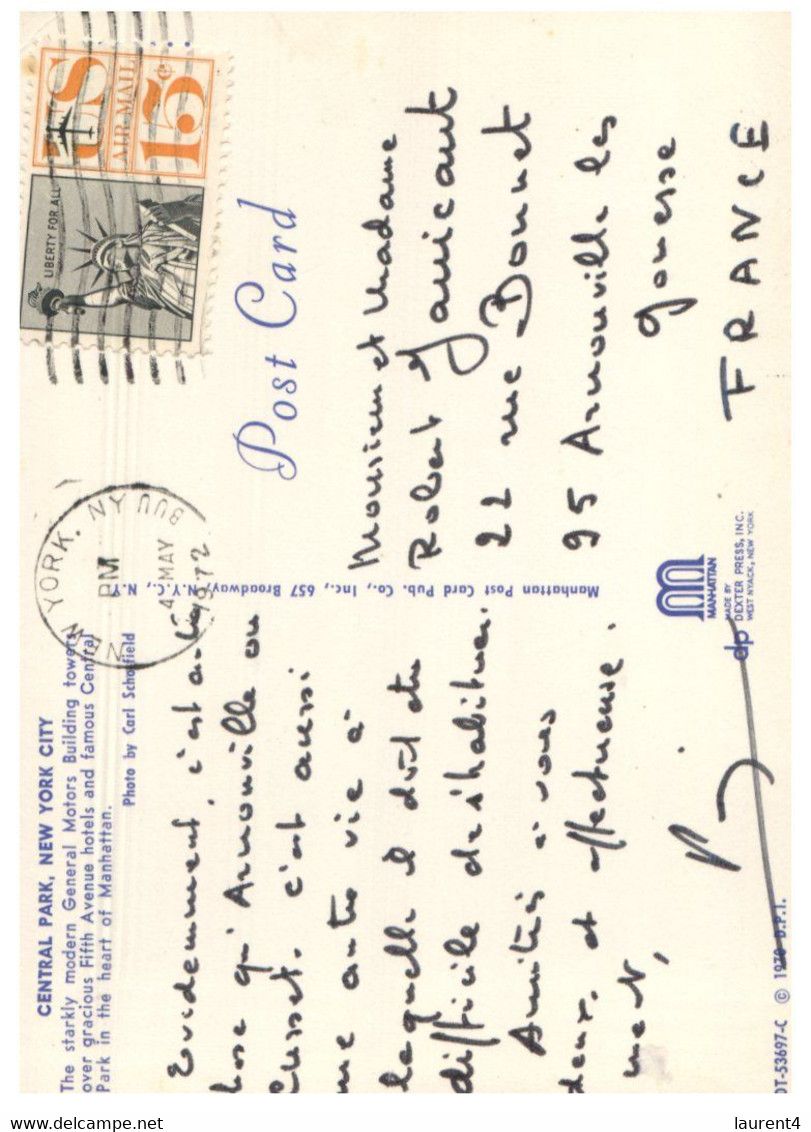 CENTRAL PARK, NEW YORK CITY
The starkly modern General Motors Building towers
over gracious Fifth Avenue hotels and famous Central
Park in the heart of Manhattan.
Photo by Carl Schonfield
Evidemment, c'est autre
hose qu'Arnouville ou
c'est aussi
ne autre vie à
laquelle il doit être
difficile de s'habituer.
Amitiés à vous
deux, et affectueuse-
ment,
DT-53697-C © 1970 D.P.I.
Manhattan Post Card Pub. Co., Inc., 657 Broadway, N.Y.C., N.Y.
MANHATTAN
dp
MADE BY
DEXTER PRESS, INC.
WEST NYACK, NEW YORK
NEW YORK, NY
PM
4 MAY
1972
US
AIR MAIL
15c
LIBERTY FOR ALL
Post Card
Monsieur et Madame
Robert
22 rue Bonnet
95 Arnouville les
Gonesse
FRANCE
www.delcampe.net
laurent4